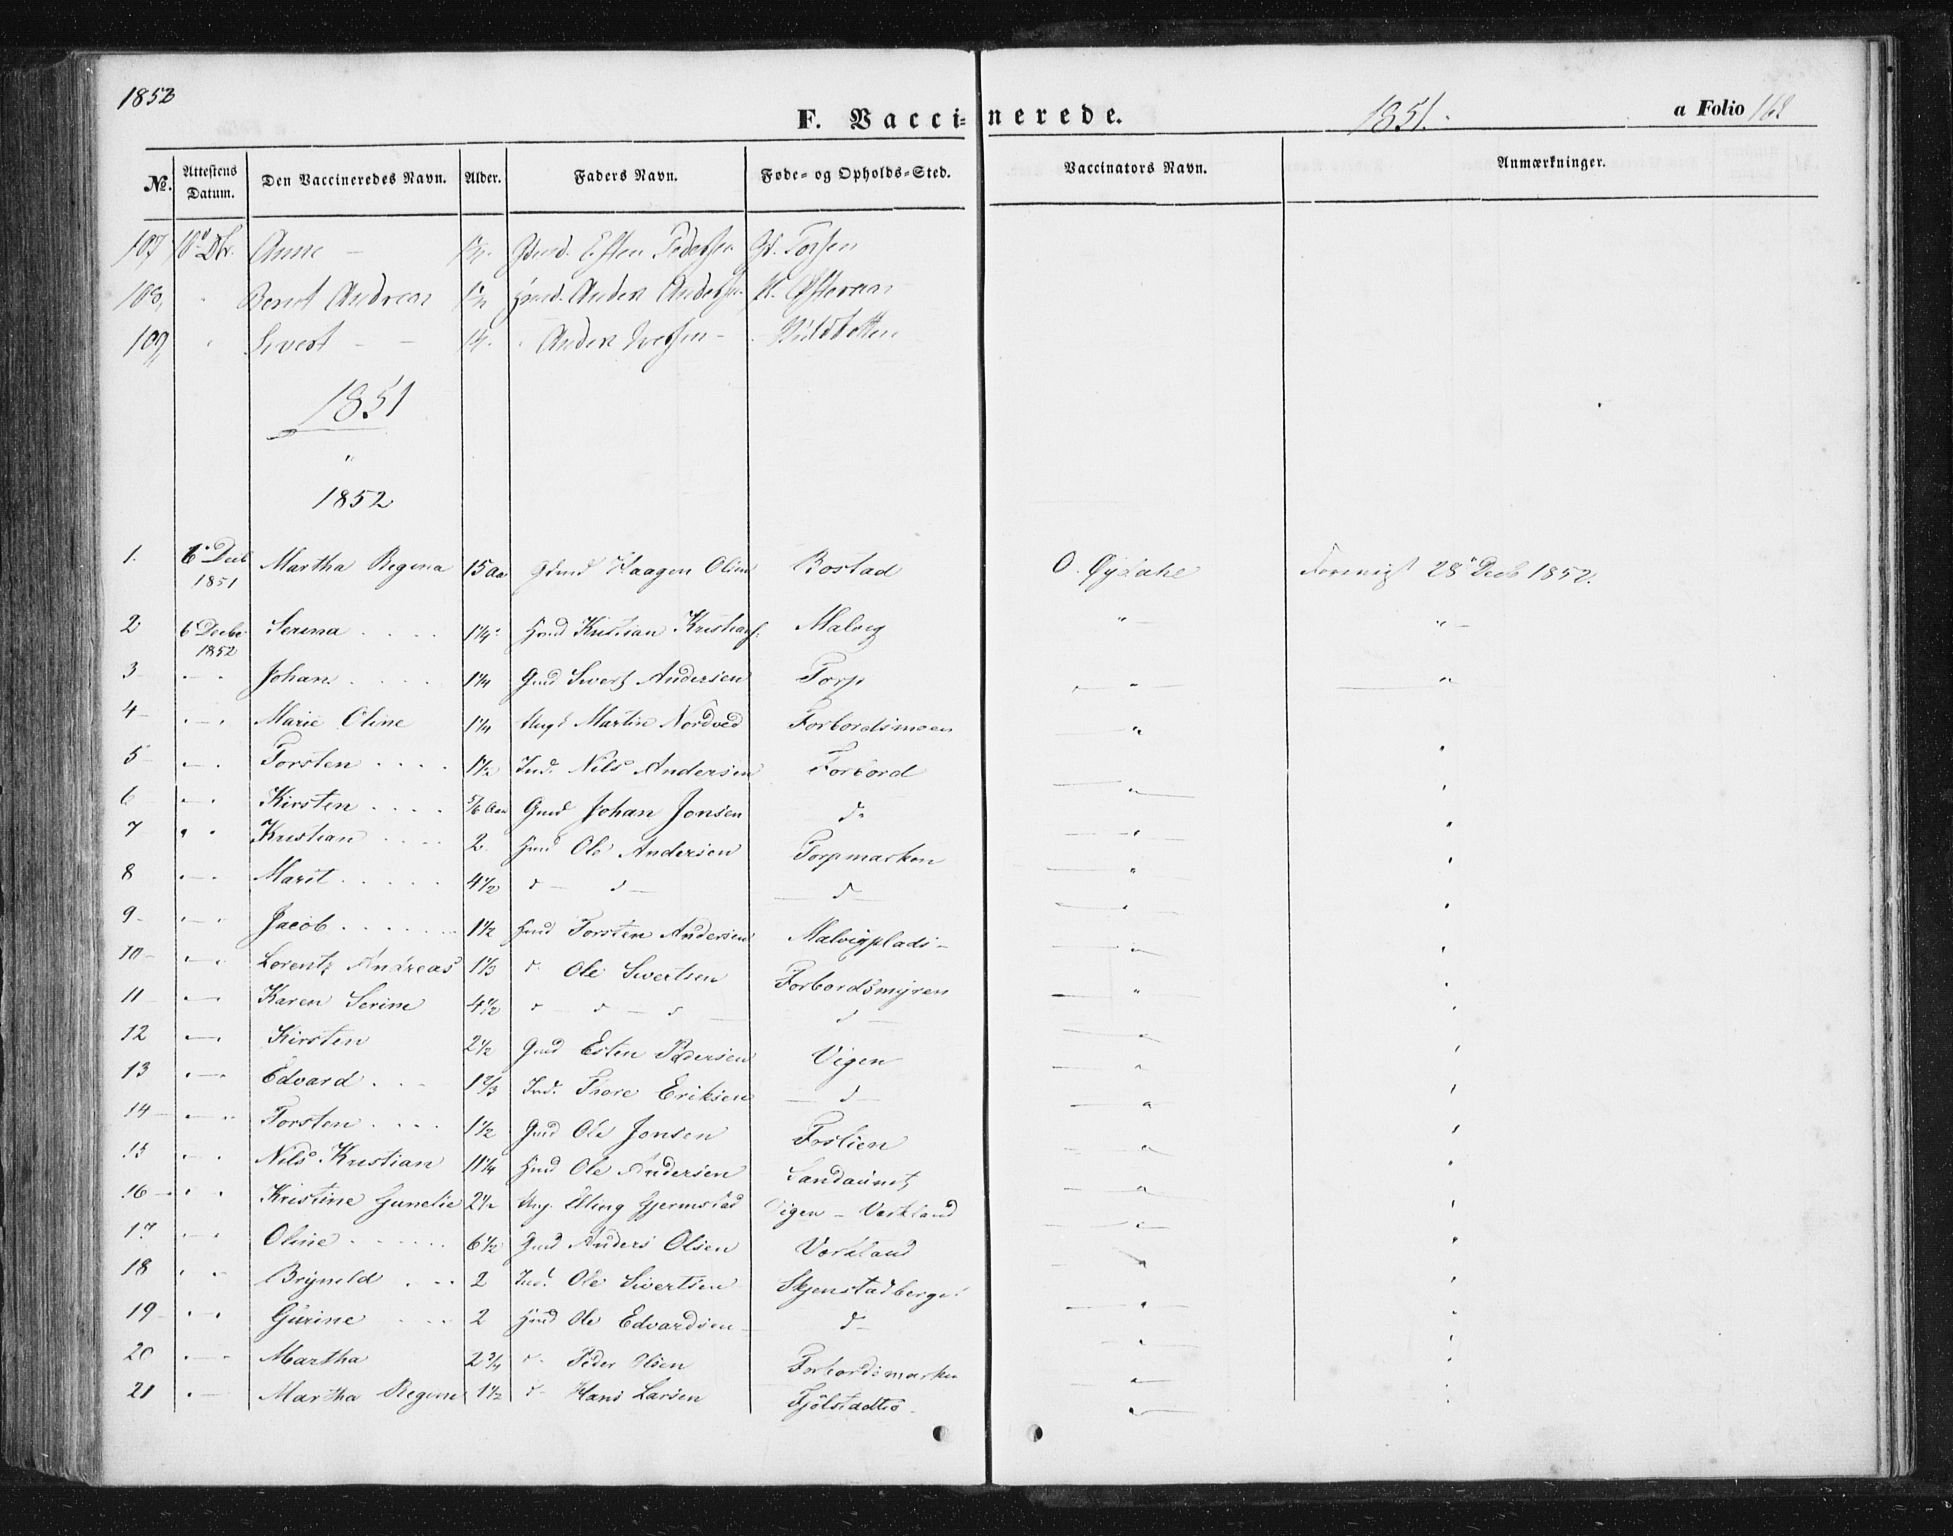 1852
F. Vaccinerede. 1851. a Folio 162
No. Attestens Datum. Den Vaccineredes Navn. Alder. Faders Navn. Føde- og Opholds-Sted. Vaccinators Navn. Anmærkninger.
107 Anne - Esten Pedersen
108, " Bernt Andreas Anders Andersen
109, " Sivert - - Anders Iversen -
1851
"
1852
1. 6 Decb 1851 Martha Regena 15 Aar Haagen Olsen Bostad O. Øydahl 28 Decb 1852.
2 6 Decbr 1852 Serena . . . . 1 1/4 Kristian Malvig " "
3 " Johan . . . . 1 1/4 Gmd Sivert Andersen Torp " "
4 " Marie Oline 1 1/4 Ungk Martin Nordved Forbordsmoen " "
5 " Torsten . . . . 1 1/2 Ind. Nils Andersen Forbord " "
6 " Kirsten . . . . 5/6 Aar Gmd Johan Jonsen do " "
7 " Kristian . . . . 2 Hmd Ole Andersen Torpmarken " "
8 " Marit . . . . . 4 1/2 d - d - d - " "
9 " Jacob . . . . . . 1 1/2 Hmd Torsten Andersen Malvigplads " "
10 " Lorentz Andreas 1 1/3 d Ole Sivertsen Forbordsmyren " "
11 " Karen Serine 4 1/2 d - d - d - d - " "
12 " Kirsten 2 1/2 Gmd Esten Pedersen Vigen " "
13 " Edvard . . . 1 2/3 Ind. Tore Eriksen d - " "
14 " Torsten . . . . 1 1/2 Gmd Ole Jonsen " "
15 " Nils Kristian 11 1/4 Hmd Ole Andersen Sandaunet " "
16 " Kristine Gunelie 2 1/2 Ung. Elling Gjermstad Vigen - " "
17 " Oline . . . . . . 6 1/2 Gmd Anders Olsen " "
18 " Bryneld . . . 2 Ind. Ole Sivertsen Skjenstadberget " "
19 " Gurine . . . 2 Hmd Ole Edvardsen d - " "
20 " Martha 2 3/4 d Peder Olsen Forbordsmarken " "
21 " Martha Regine 1 1/2 d Hans Larsen Fjølstadtrø " "